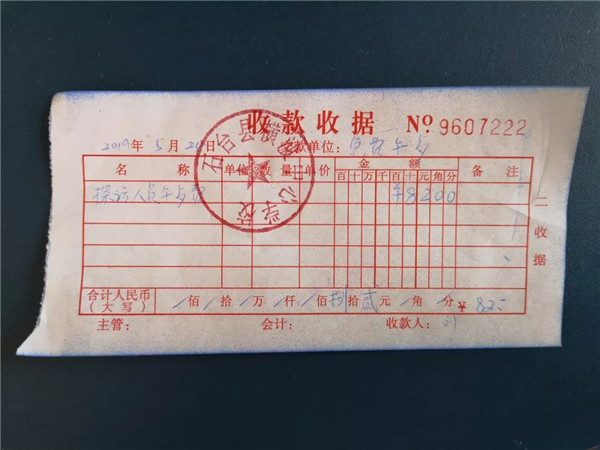 收款收据 № 9607222
2019年5月2 日 交款单位:
名称 单位 数量 单价 金额 备注
百十万千百十元角分
探访人员午餐费 ¥8200
二收据
合计人民币(大写) /佰/拾/万/仟/佰捌拾贰元/角/分 ¥ 82
主管: 会计: 收款人: 刘
石台县横 中心学校